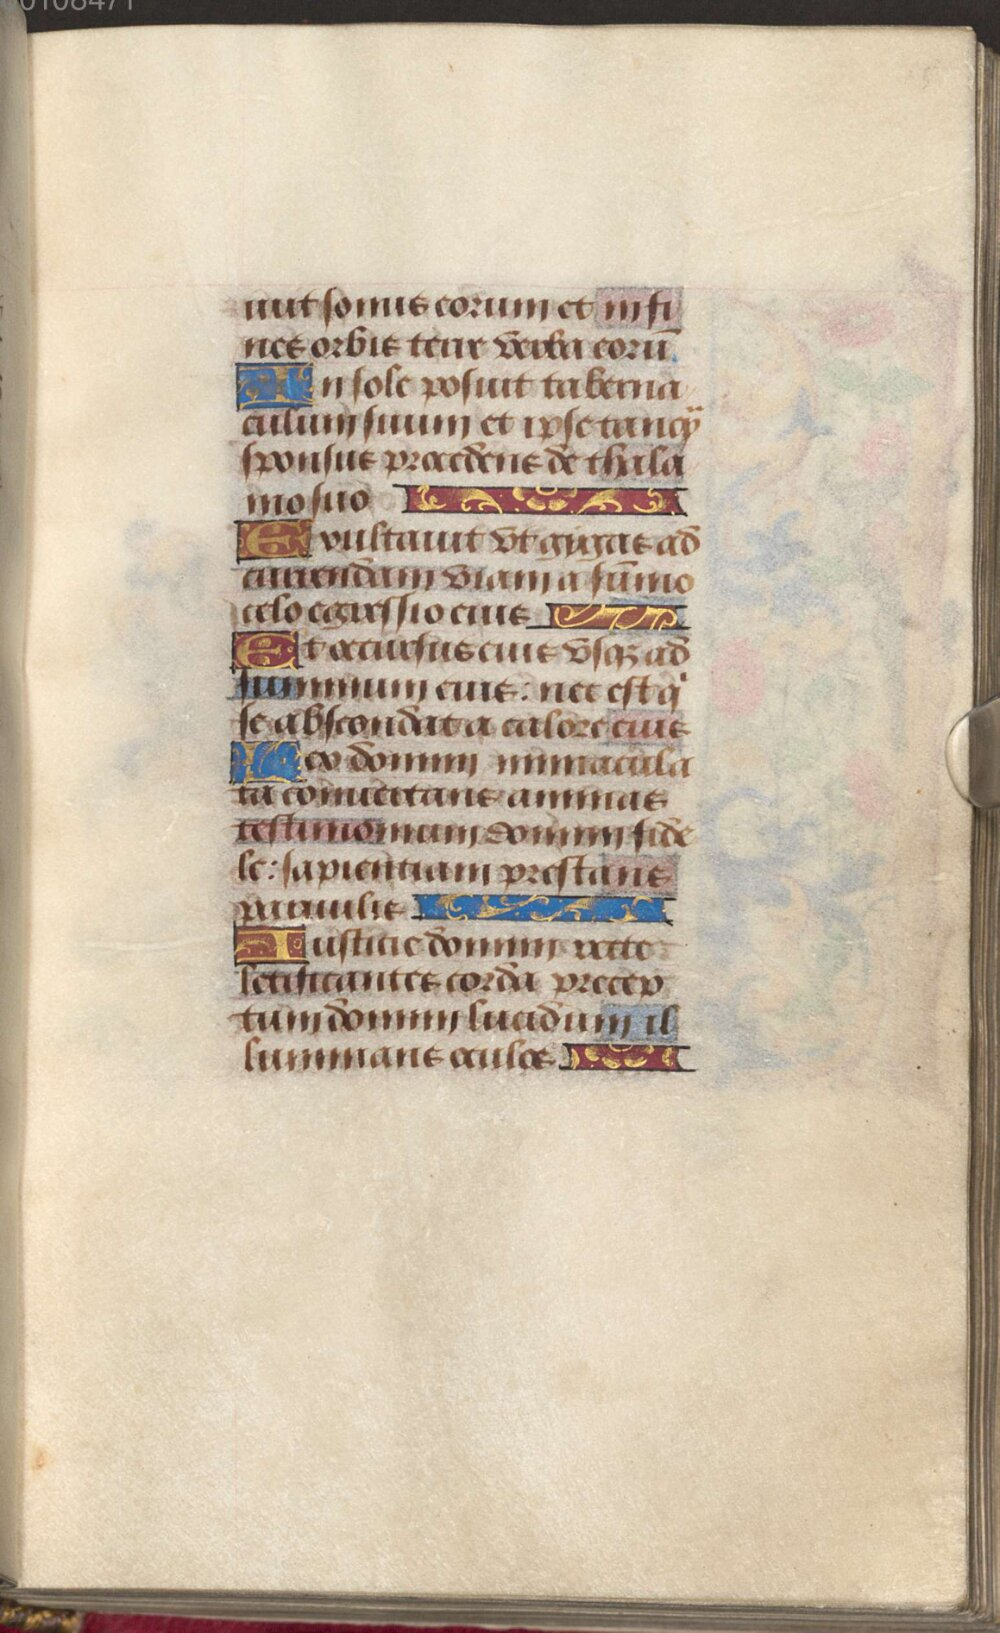 00108471
uit sonus eorum et in fi
nes orbis terre verba eorū
In sole posuit taberna
culum suum et ipse tanq̄
sponsus procedens de thala
mo suo
Exultauit vt gigas ad
currendam viam a sūmo
celo egressio eius
Et occursus eius vsqz ad
summum eius: nec est q'
se abscondat a calore eius
Lex domini immacula
ta conuertans animas
testimonium domini fide
le: sapientiam prestans
paruulis
Iusticie domini recte
letificantes corda precep
tum domini lucidum il
luminans oculos